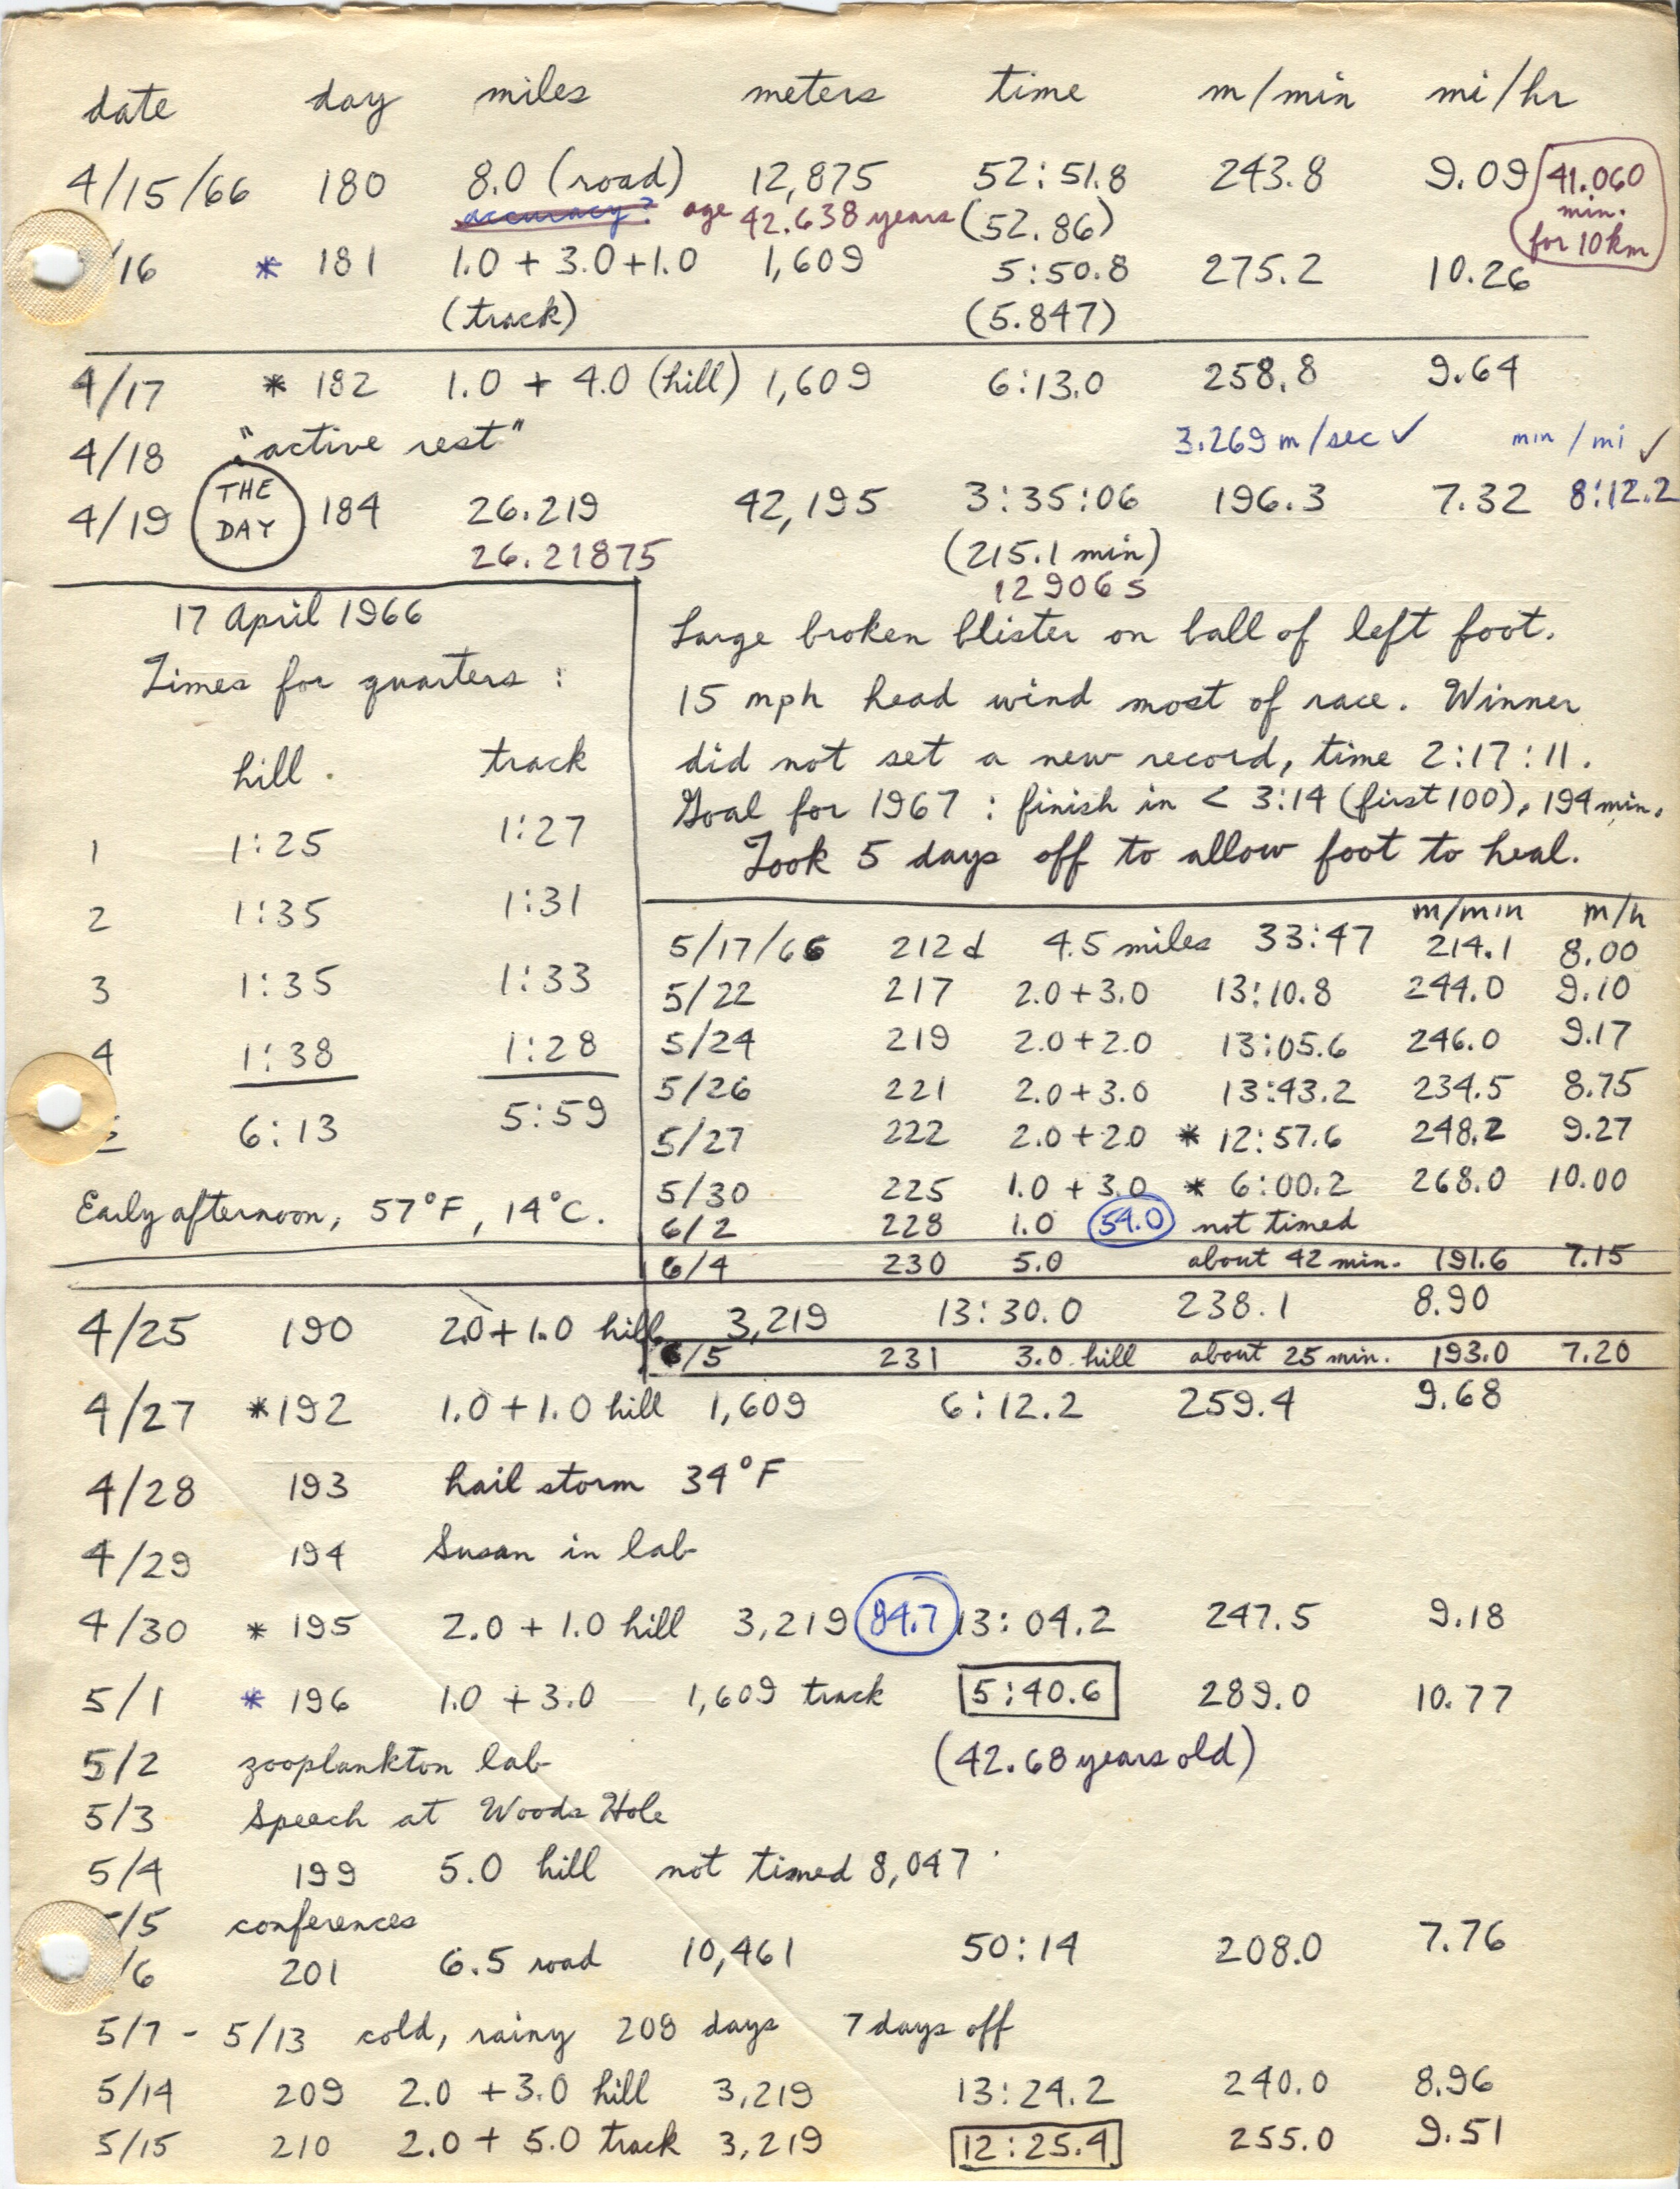 date day miles meters time m/min mi/hr
4/15/66 180 8.0 (road) 12,875 52:51.8 243.8 9.09
accuracy? age 42.638 years (52.86)
41.060
min.
for 10km
/16 * 181 1.0 + 3.0 + 1.0 1,609 5:50.8 275.2 10.26
(track) (5.847)
4/17 * 182 1.0 + 4.0 (hill) 1,609 6:13.0 258.8 9.64
4/18 "active rest" 3.269 m/sec ✓ min/mi ✓
4/19 THE DAY 184 26.219 42,195 3:35:06 196.3 7.32 8:12.2
26.21875 (215.1 min)
12906 s
17 April 1966
Times for quarters :
hill. track
1 1:25 1:27
2 1:35 1:31
3 1:35 1:33
4 1:38 1:28
6:13 5:59
Early afternoon, 57°F, 14°C.
Large broken blister on ball of left foot.
15 mph head wind most of race. Winner
did not set a new record, time 2:17:11.
Goal for 1967 : finish in < 3:14 (first 100), 194 min.
Took 5 days off to allow foot to heal.
m/min m/h
5/17/66 212 d 4.5 miles 33:47 214.1 8.00
5/22 217 2.0 + 3.0 13:10.8 244.0 9.10
5/24 219 2.0 + 2.0 13:05.6 246.0 9.17
5/26 221 2.0 + 3.0 13:43.2 234.5 8.75
5/27 222 2.0 + 2.0 * 12:57.6 248.2 9.27
5/30 225 1.0 + 3.0 * 6:00.2 268.0 10.00
6/2 228 1.0 54.0 not timed
6/4 230 5.0 about 42 min. 191.6 7.15
4/25 190 2.0 + 1.0 hill 3,219 13:30.0 238.1 8.90
6/5 231 3.0 hill about 25 min. 193.0 7.20
4/27 * 192 1.0 + 1.0 hill 1,609 6:12.2 259.4 9.68
4/28 193 hail storm 34°F
4/29 194 Susan in lab
4/30 * 195 2.0 + 1.0 hill 3,219 84.7 13:04.2 247.5 9.18
5/1 * 196 1.0 + 3.0 1,609 track 5:40.6 289.0 10.77
5/2 zooplankton lab (42.68 years old)
5/3 Speech at Woods Hole
5/4 199 5.0 hill not timed 8,047
/5 conferences
/6 201 6.5 road 10,461 50:14 208.0 7.76
5/7 - 5/13 cold, rainy 208 days 7 days off
5/14 209 2.0 + 3.0 hill 3,219 13:24.2 240.0 8.96
5/15 210 2.0 + 5.0 track 3,219 12:25.4 255.0 9.51